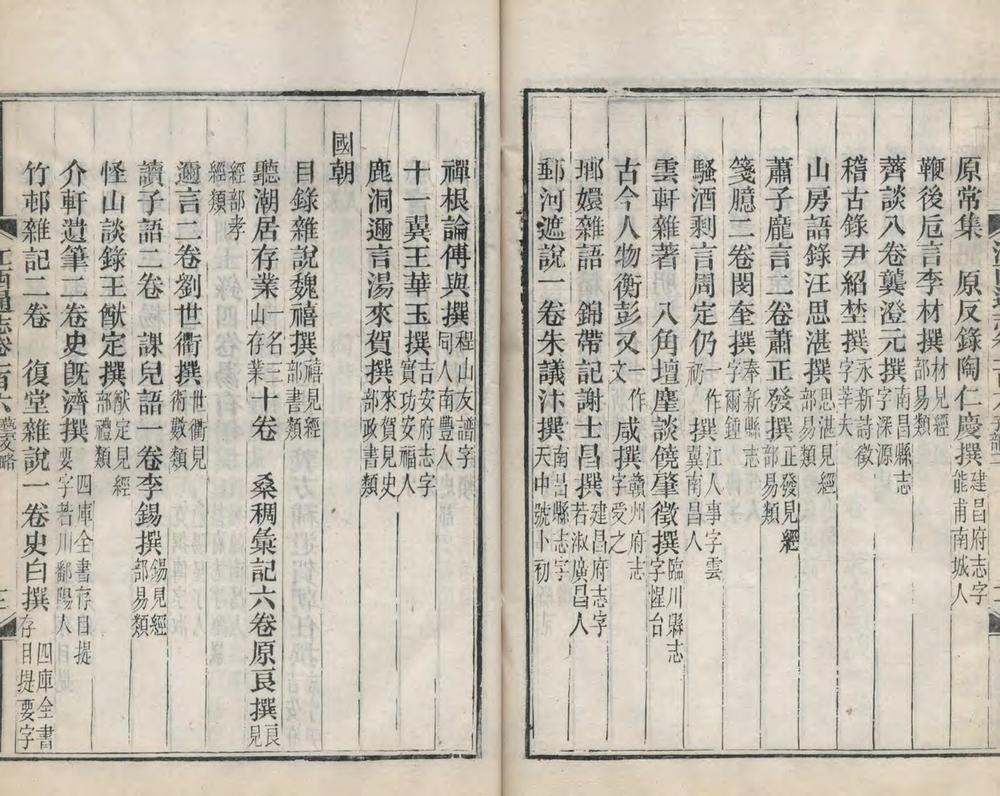 原常集　原反錄陶仁慶撰建昌府志字能甫南城人
鞭後卮言李材撰材見經部易類
薺談八卷龔澄元撰南昌縣志字深源
稽古錄尹紹堃撰永新詩徵字莘夫
山房語錄汪思湛撰思湛見經部易類
蕭子龐言二卷蕭正發撰正發見經部易類
箋臆二卷閔奎撰奉新縣志字爾鍾
騷酒剩言周定仍撰江人事字雲冀南昌人
雲軒雜著　八角壇麈談饒肇徵撰臨川縣志字惺台
古今人物衡彭文一作咸撰贛州府志字愛之
瑯嬛雜語　錦帶記謝士昌撰建昌府志字若淑廣昌人
郵河遮說一卷朱議汴撰南昌縣志字天中號卜初
禪根論傅與撰程山友譜字同人南豐人
十一翼王華玉撰吉安府志字實功安福人
鹿洞邇言湯來賀撰來賀見史部政書類
國朝
目錄雜說魏禧撰禧見經部書類
聽潮居存業一名三山存業十卷　桑稠彙記六卷原良撰良見
經部孝經類
邇言二卷劉世衢撰世衢見術數類
讀子語二卷　課兒語一卷李錫撰錫見經部易類
怪山談錄王猷定撰猷定見經部禮類
介軒遺筆二卷史旣濟撰四庫全書存目提要字若川鄱陽人
竹邨雜記二卷　復堂雜說一卷史白撰四庫全書存目提要字
江西通志卷一百六藝文略